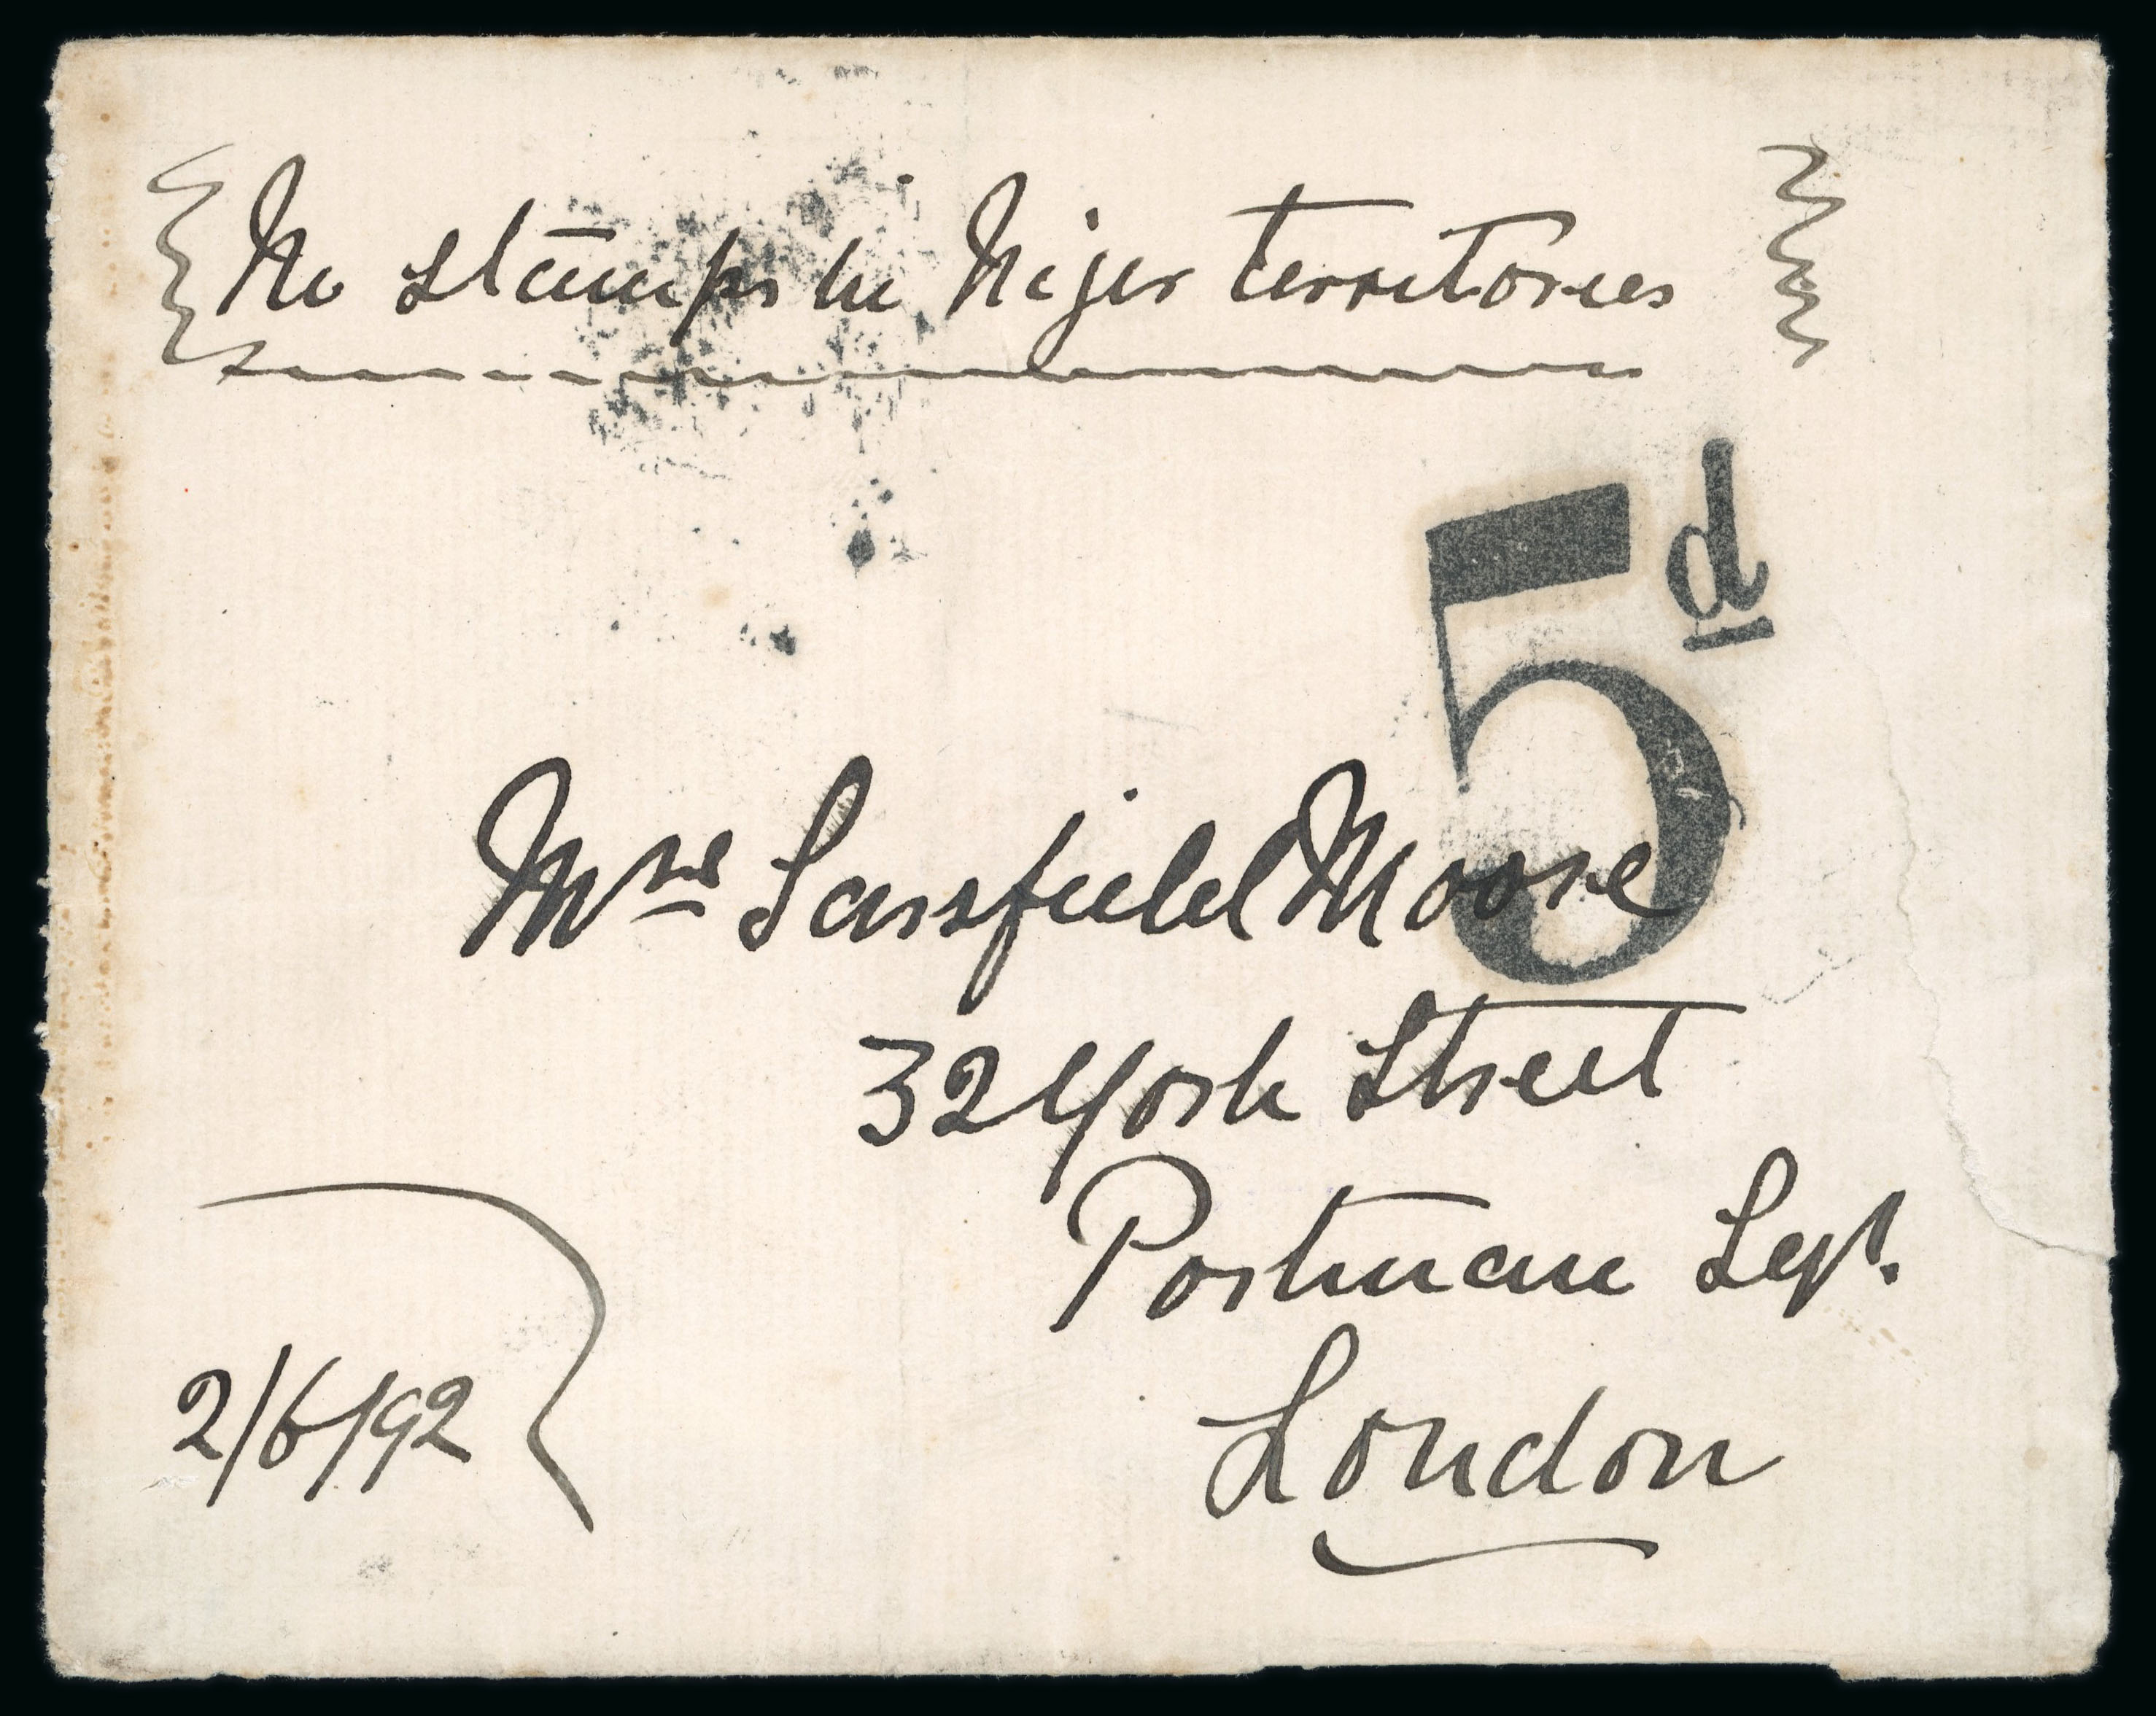 No stamps in Niger Territories
5d
Mrs Sarsfield Moore
32 York Street
Portman Sqr.
London
2/6/92